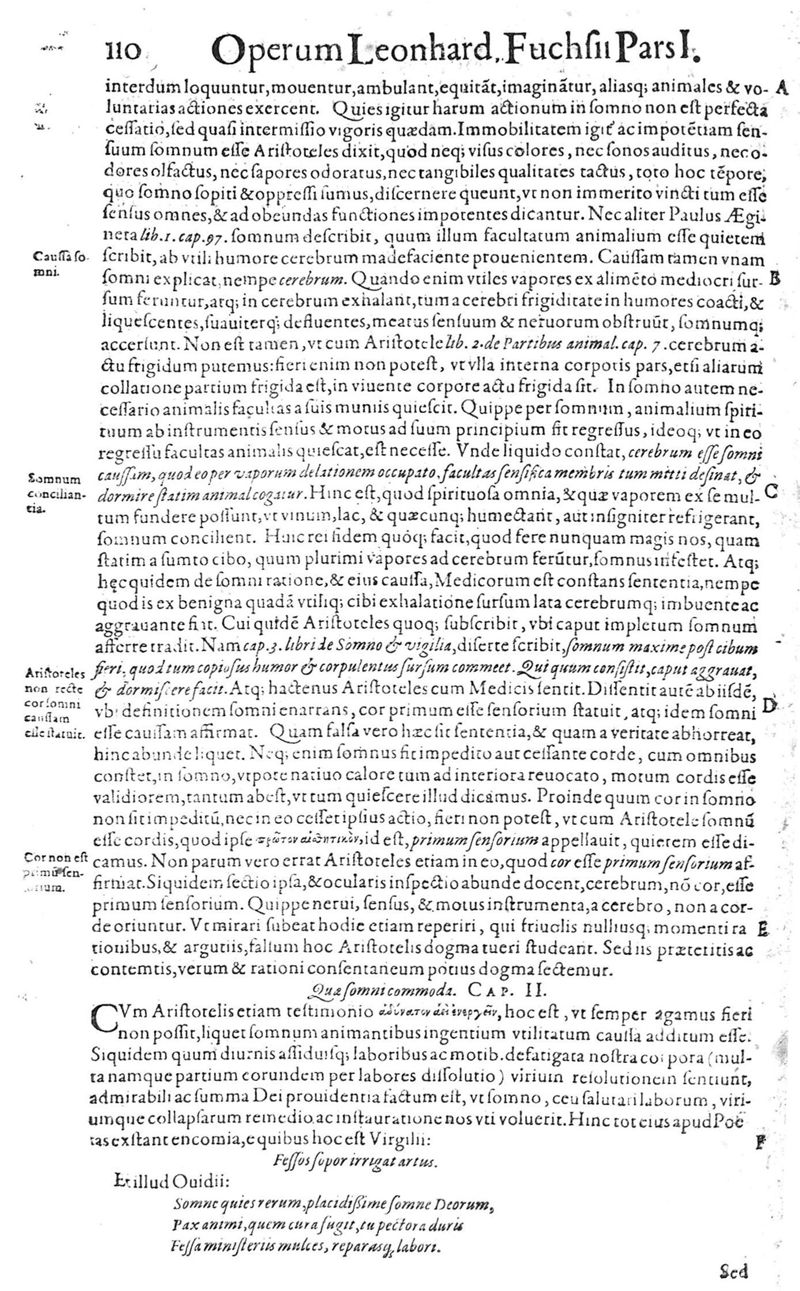 110 Operum Leonhard. Fuchsii Pars I.
interdum loquuntur, mouentur, ambulant, equitāt, imaginātur, aliasq; animales & vo- A
luntarias actiones exercent. Quies igitur harum actionum in somno non est perfecta
cessatio, sed quasi intermissio vigoris quædam. Immobilitatem igit᷑ ac impotētiam sen-
suum somnum esse Aristoteles dixit, quod neq; visus colores, nec sonos auditus, nec o-
dores olfactus, nec sapores odoratus, nec tangibiles qualitates tactus, toto hoc tēpore,
quo somno sopiti & oppressi sumus, discernere queunt, vt non immerito vincti tum esse
sensus omnes, & ad obeundas functiones impotentes dicantur. Nec aliter Paulus Ægi-
neta lib. 1. cap. 97. somnum describit, quum illum facultatum animalium esse quietem
Caussa so-
mni.
scribit, ab vtili humore cerebrum madefaciente prouenientem. Caussam tamen vnam
somni explicat, nempe cerebrum. Quando enim vtiles vapores ex alimēto mediocri sur- B
sum feruntur, atq; in cerebrum exhalant, tum a cerebri frigiditate in humores coacti, &
liquescentes, suauiterq; defluentes, meatus sensuum & neruorum obstruūt, somnumq;
accersunt. Non est tamen, vt cum Aristotele lib. 2. de Partibus animal. cap. 7. cerebrum a-
ctu frigidum putemus: fieri enim non potest, vt vlla interna corporis pars, etsi aliarum
collatione partium frigida est, in viuente corpore actu frigida sit. In somno autem ne-
cessario animalis facultas a suis muniis quiescit. Quippe per somnum, animalium spiri-
tuum ab instrumentis sensus & motus ad suum principium fit regressus, ideoq; vt in eo
regressu facultas animalis quiescat, est necesse. Vnde liquido constat, cerebrum esse somni
Somnum
concilian-
tia.
caussam, quod eo per vaporum delationem occupato, facultas sensifica membris tum mitti desinat, &
dormire statim animal cogatur. Hinc est, quod spirituosa omnia, & quæ vaporem ex se mul- C
tum fundere possunt, vt vinum, lac, & quæcunq; humectant, aut insigniter refrigerant,
somnum concilient. Huic rei fidem quoq; facit, quod fere nunquam magis nos, quam
statim a sumto cibo, quum plurimi vapores ad cerebrum ferūtur, somnus infestet. Atq;
hęc quidem de somni ratione, & eius caussa, Medicorum est constans sententia, nempe
quod is ex benigna quadā vtiliq; cibi exhalatione sursum lata cerebrumq; imbuente ac
aggrauante fiat. Cui quidē Aristoteles quoq; subscribit, vbi caput impletum somnum
afferre tradit. Nam cap. 3. libri de Somno & vigilia, diserte scribit, somnum maxime post cibum
Aristoteles
non recte
cor somni
caussam
esse statuit.
fieri, quod tum copiosus humor & corpulentus sursum commeet. Qui quum consistit, caput aggrauat,
& dormiscere facit. Atq; hactenus Aristoteles cum Medicis sentit. Dissentit autē ab iisdē,
vbi definitionem somni enarrans, cor primum esse sensorium statuit, atq; idem somni D
esse caussam affirmat. Quam falsa vero hæc sit sententia, & quam a veritate abhorreat,
hinc abunde liquet. Neq; enim somnus fit impedito aut cessante corde, cum omnibus
constet, in somno, vtpote natiuo calore tum ad interiora reuocato, motum cordis esse
validiorem, tantum abest, vt tum quiescere illud dicamus. Proinde quum cor in somno
non sit impeditū, nec in eo cesset ipsius actio, fieri non potest, vt cum Aristotele somnū
esse cordis, quod ipse πρῶτον αἰσθητικὸν, id est, primum sensorium appellauit, quietem esse di-
Cor non est
primū sen-
sorium.
camus. Non parum vero errat Aristoteles etiam in eo, quod cor esse primum sensorium af-
firmat. Siquidem sectio ipsa, & ocularis inspectio abunde docent, cerebrum, nō cor, esse
primum sensorium. Quippe nerui, sensus, & motus instrumenta, a cerebro, non a cor-
de oriuntur. Vt mirari subeat hodie etiam reperiri, qui friuolis nulliusq; momenti ra E
tionibus, & argutiis, falsum hoc Aristotelis dogma tueri studeant. Sed iis prætetitis ac
contemtis, verum & rationi consentaneum potius dogma sectemur.
Quæ somni commoda. CAP. II.
CVm Aristotelis etiam testimonio ἀδύνατον ἀεὶ ἐνεργεῖν, hoc est, vt semper agamus fieri
non possit, liquet somnum animantibus ingentium vtilitatum caussa additum esse.
Siquidem quum diurnis assiduisq; laboribus ac motib. defatigata nostra corpora (mul-
ta namque partium eorundem per labores dissolutio) virium resolutionem sentiunt,
admirabili ac summa Dei prouidentia factum est, vt somno, ceu salutari laborum, viri-
umque collapsarum remedio, ac instauratione nos vti voluerit. Hinc tot eius apud Poë
tas exstant encomia, e quibus hoc est Virgilii: F
Fessos sopor irrigat artus.
Et illud Ouidii:
Somne quies rerum, placidissime somne Deorum,
Pax animi, quem cura fugit, tu pectora duris
Fessa ministeriis mulces, reparasq; labori.
Sed